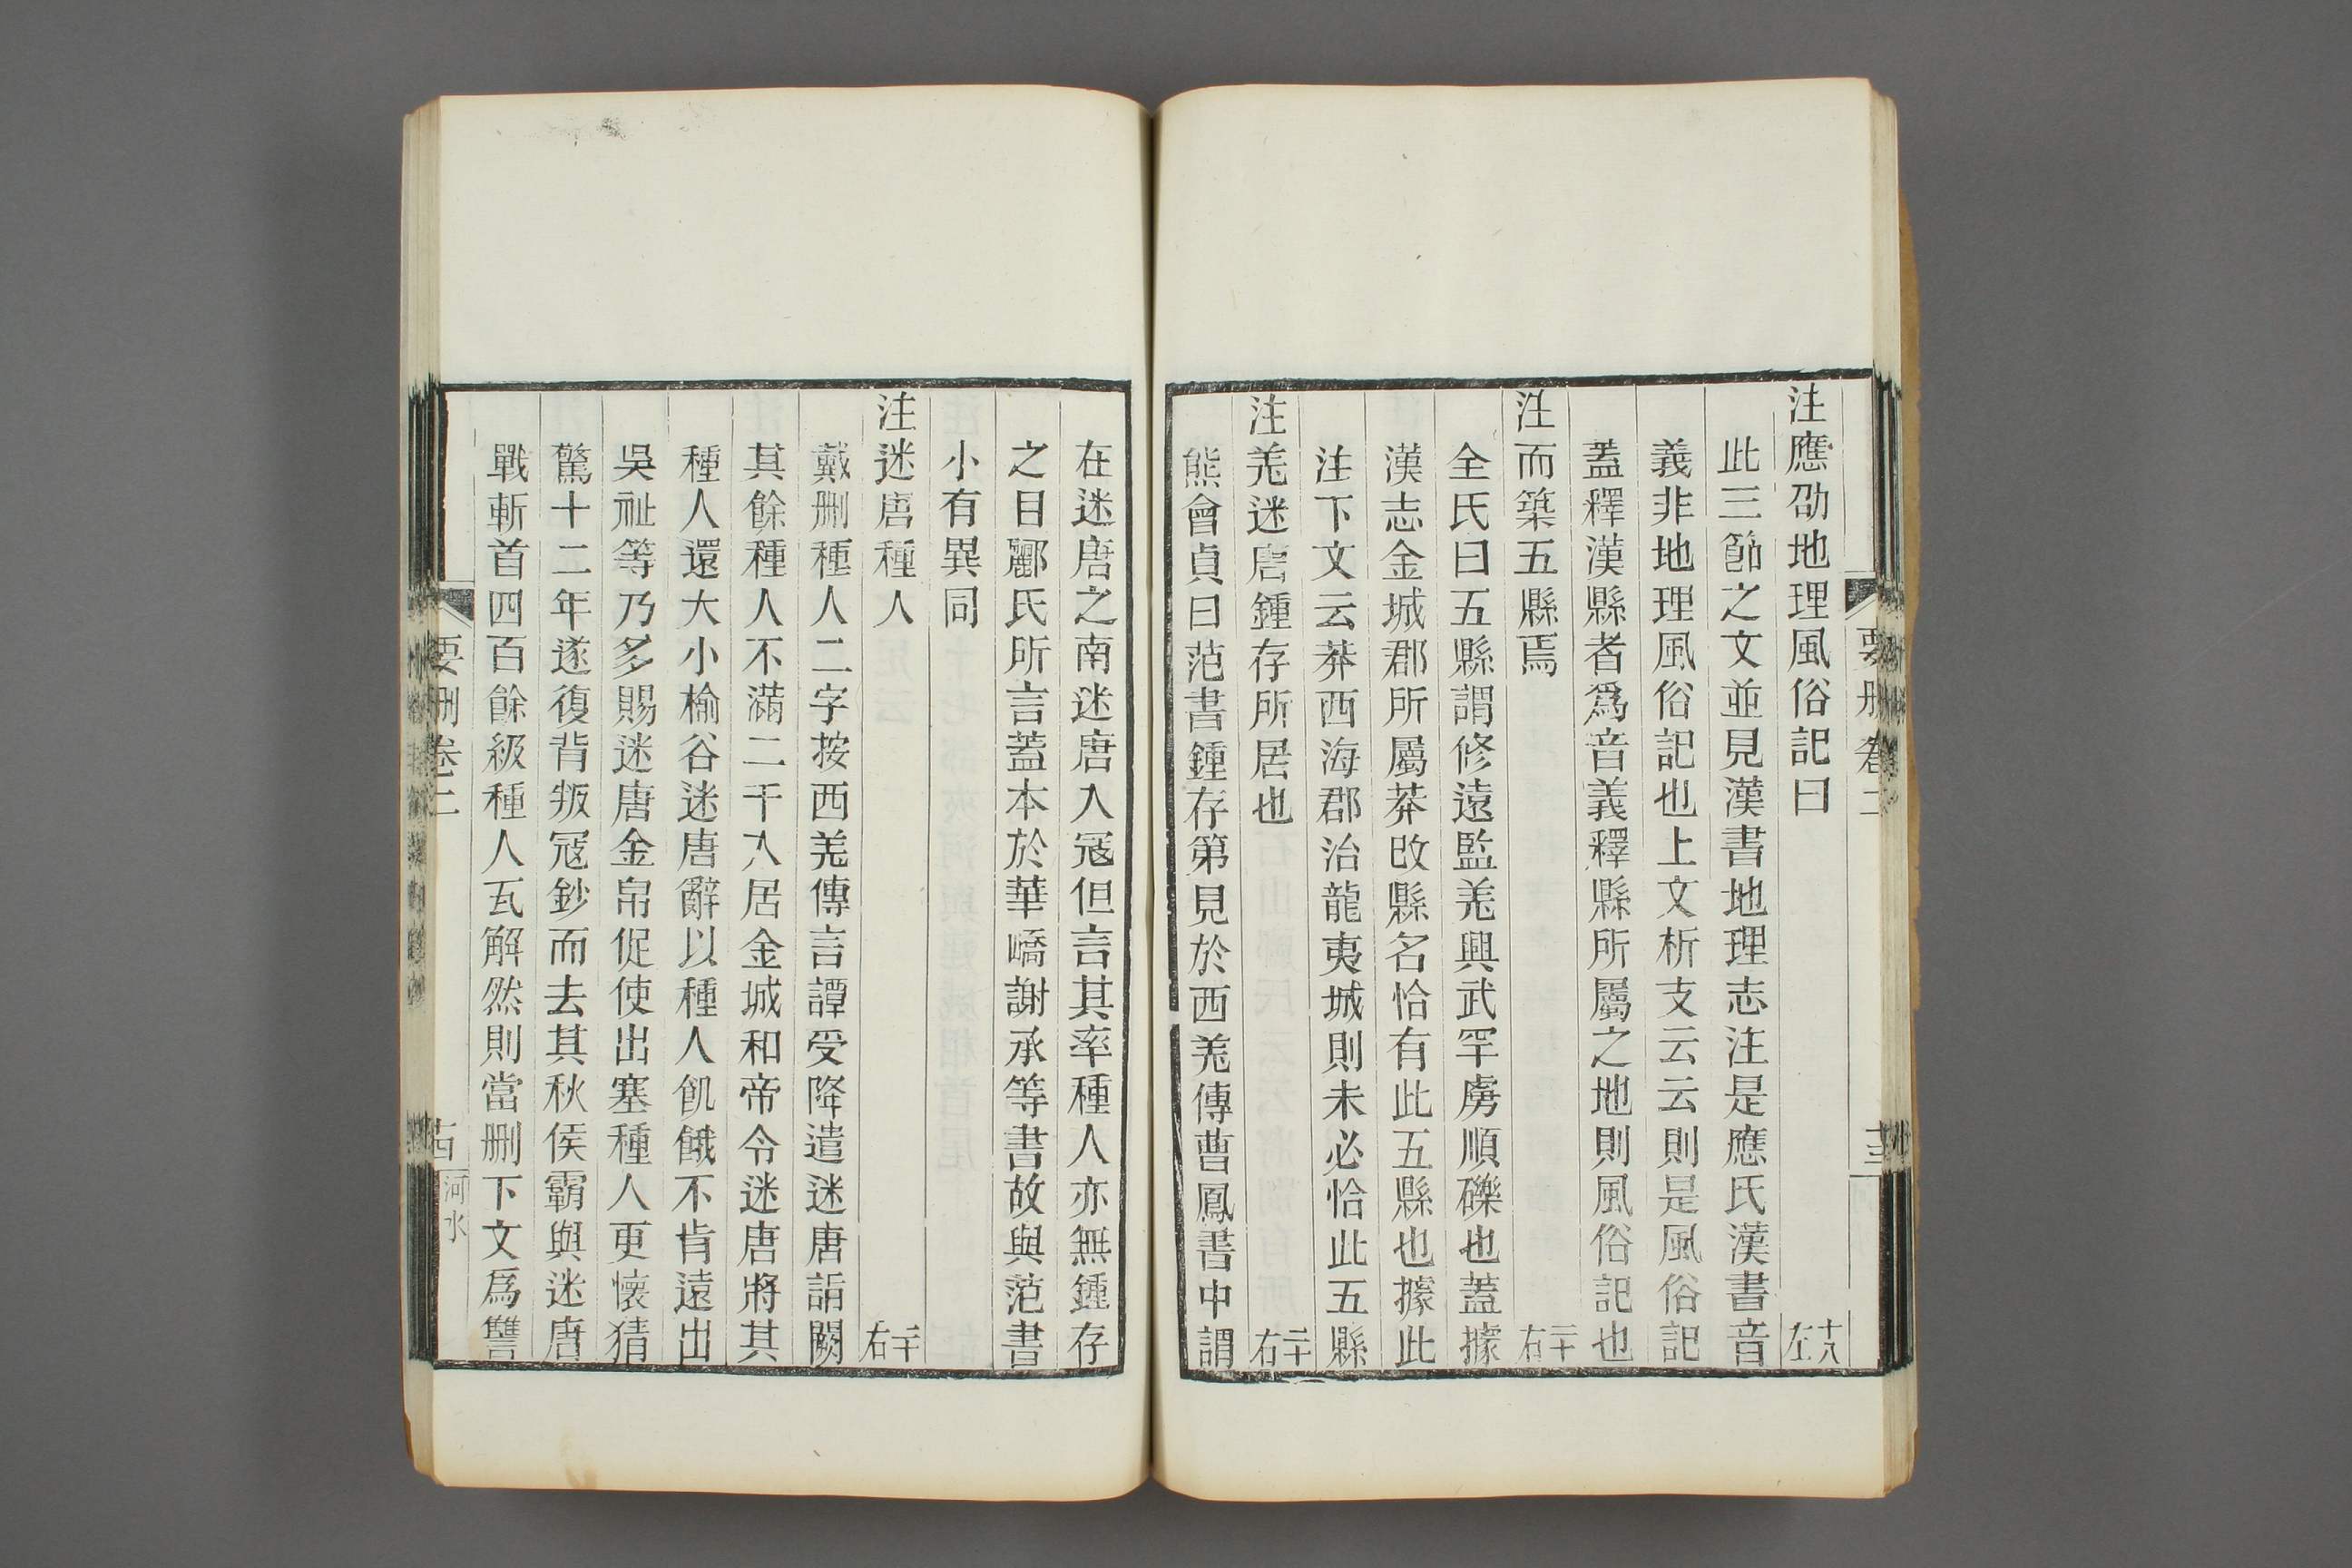 要刪卷二
十三
注應劭地理風俗記曰 十八左
此三節之文並見漢書地理志注是應氏漢書音
義非地理風俗記也上文析支云云則是風俗記
蓋釋漢縣者爲音義釋縣所屬之地則風俗記也
注而築五縣焉 二十右
全氏曰五縣謂修遠監羌興武罕虜順礫也蓋據
漢志金城郡所屬莽改縣名恰有此五縣也據此
注下文云莽西海郡治龍夷城則未必恰此五縣
注羌迷唐鍾存所居也 二十右
熊會貞曰范書鍾存第見於西羌傳曹鳳書中謂
在迷唐之南迷唐入寇但言其率種人亦無鍾存
之目酈氏所言蓋本於華嶠謝承等書故與范書
小有異同
注迷唐種人 二十右
戴刪種人二字按西羌傳言譚受降遣迷唐詣闕
其餘種人不滿二千入居金城和帝令迷唐將其
種人還大小榆谷迷唐辭以種人飢餓不肯遠出
吳祉等乃多賜迷唐金帛促使出塞種人更懷猜
驚十二年遂復背叛寇鈔而去其秋侯霸與迷唐
戰斬首四百餘級種人瓦解然則當刪下文爲讐
要刪卷二
河水